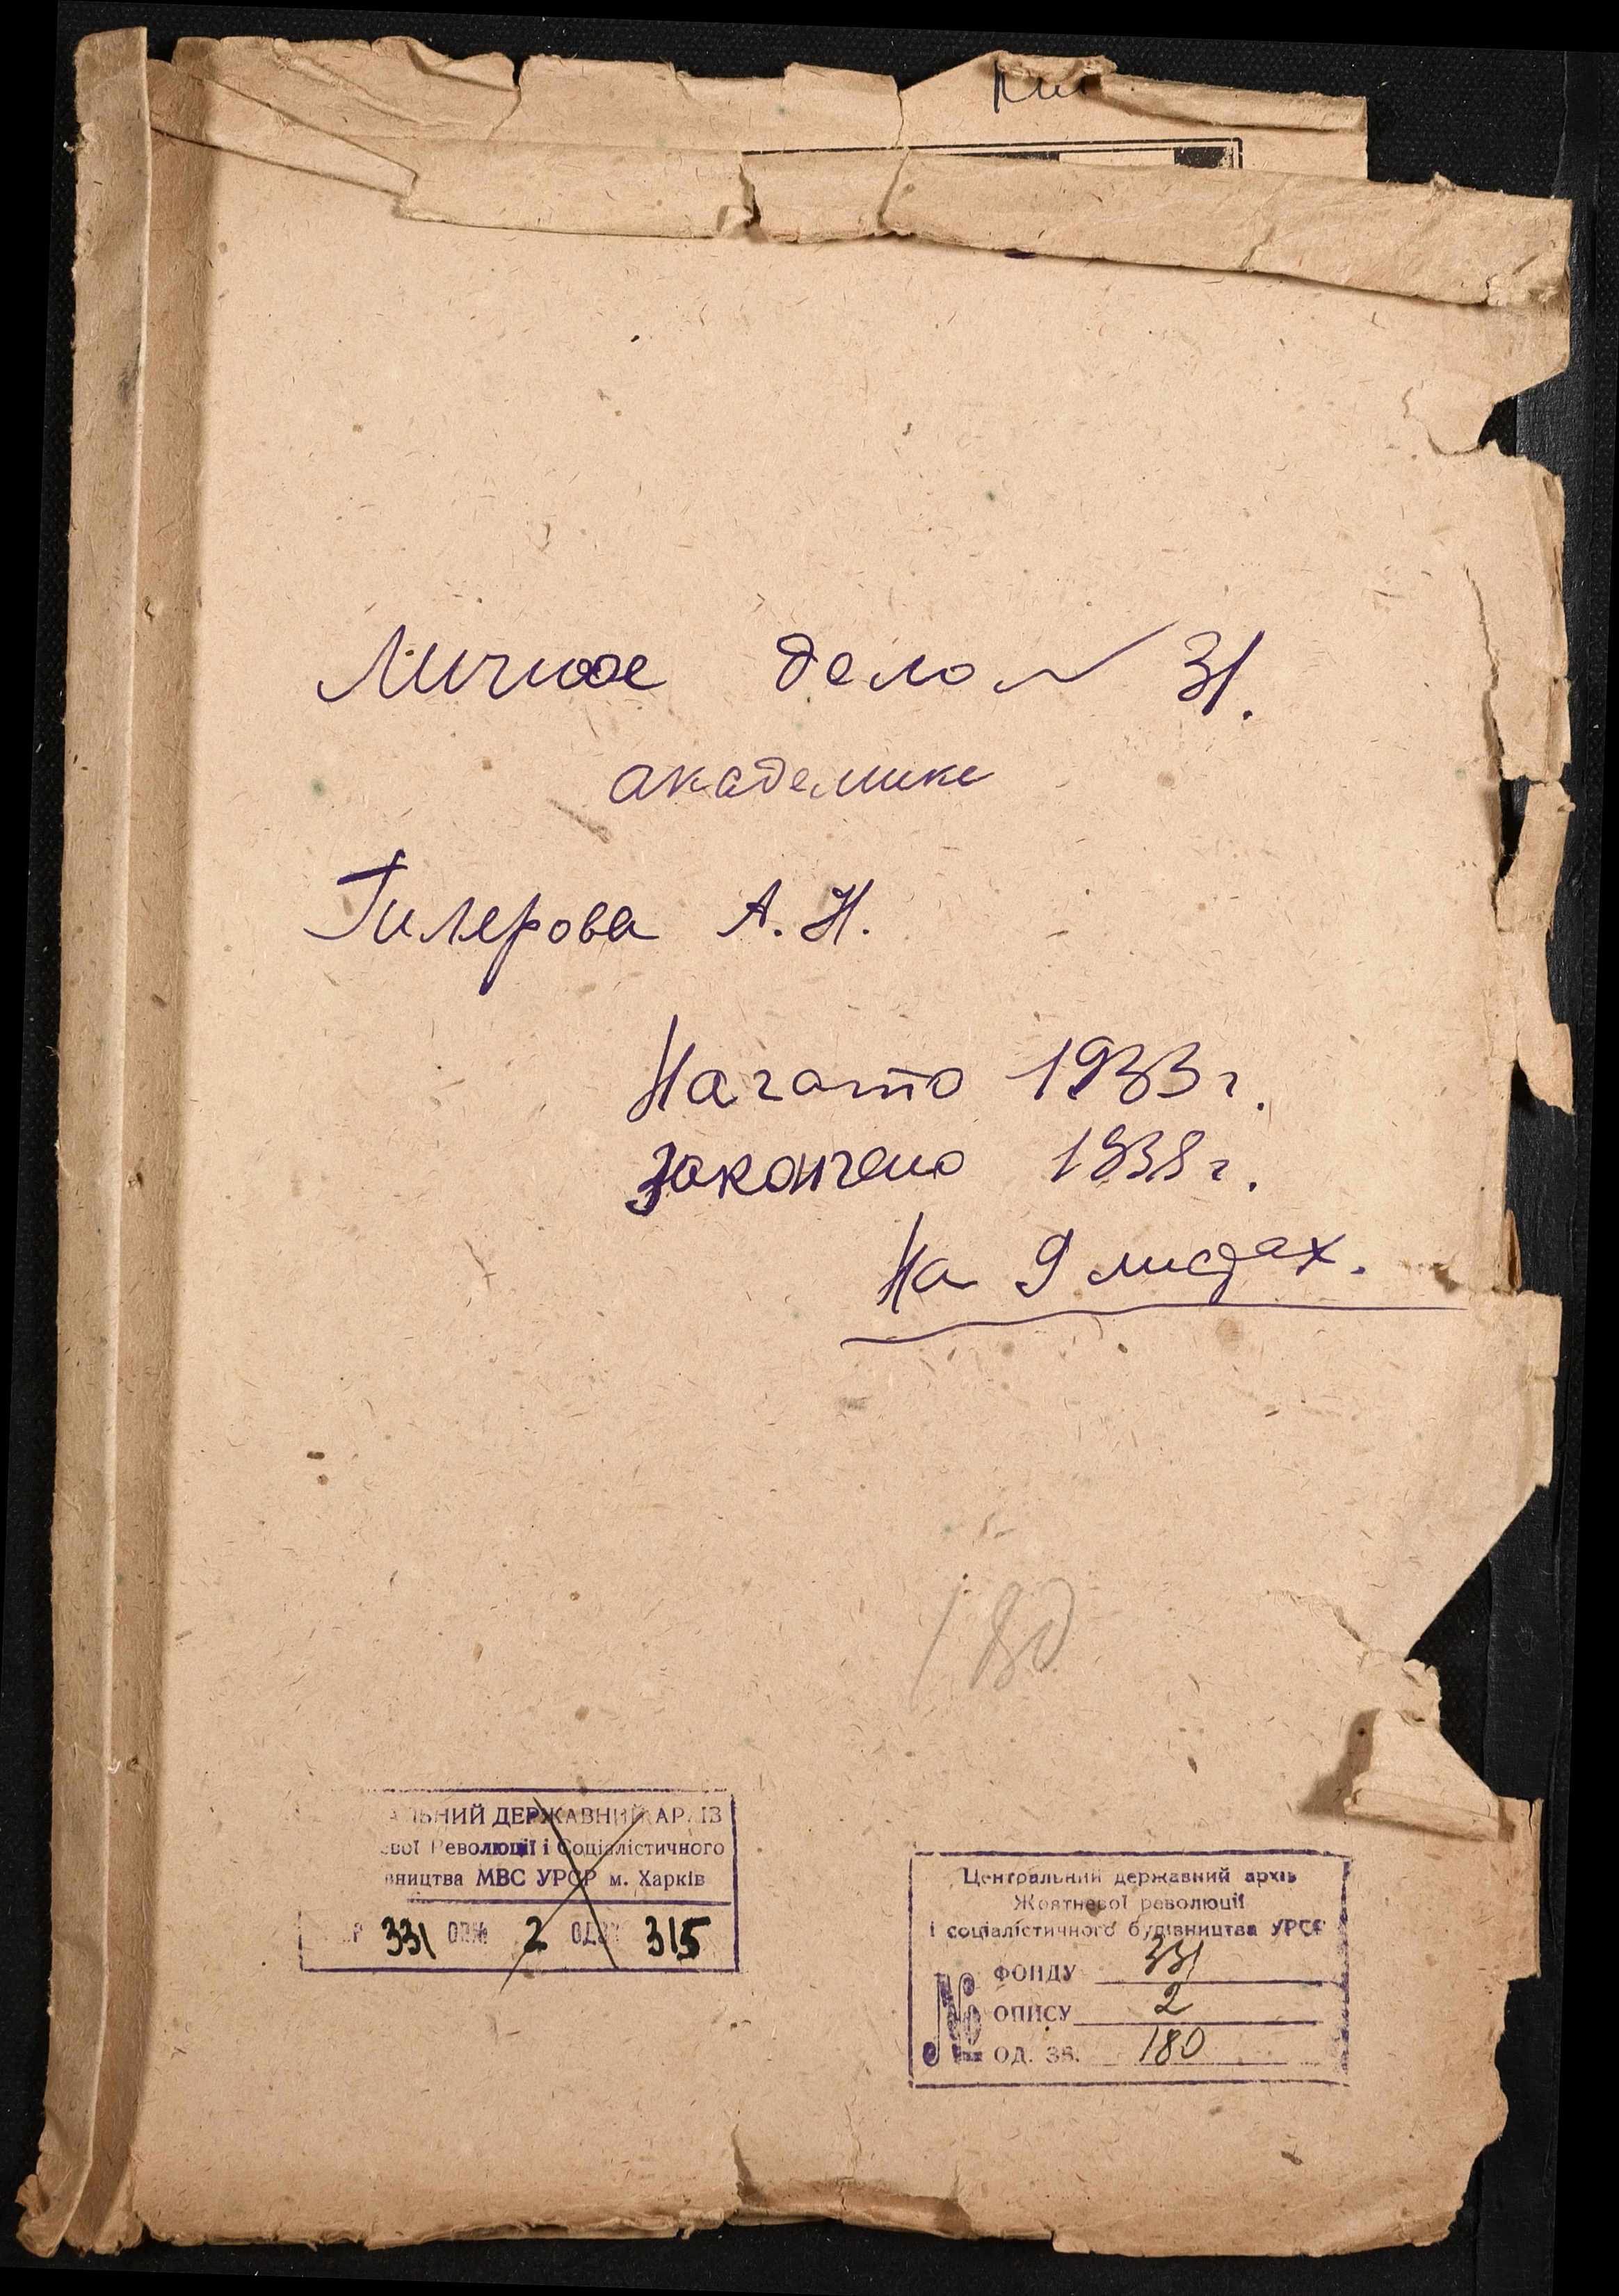 Личное дело № 31.
академика
Гилерова А. Н.
Начато 1933 г.
закончено 1938 г.
На 9 листах.
180
АЛЬНИЙ ДЕРЖАВНИЙ АРХІВ
вої Революції і Соціалістичного
вництва МВС УРСР м. Харків
Р 331 ОПИС 2 ОД.ЗБ. 315
Центральний державний архів
Жовтневої революції
і соціалістичного будівництва УРСР
№
ФОНДУ 331
ОПИСУ 2
ОД. ЗБ. 180